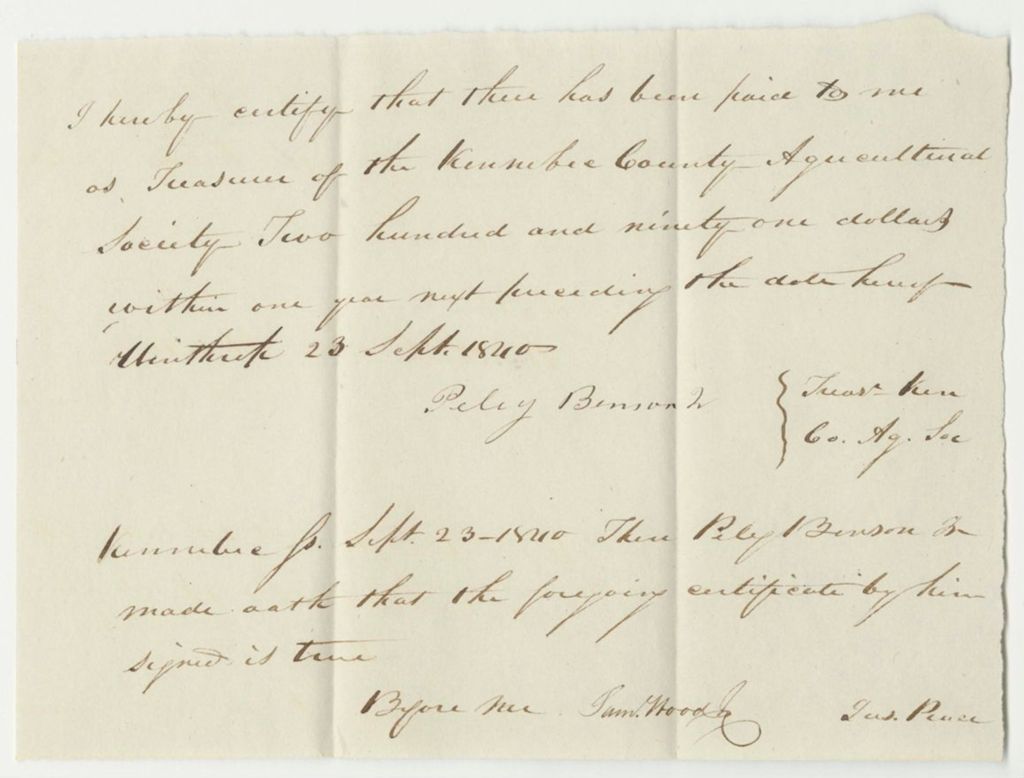 I hereby certify that there has been paid to me
as Treasurer of the Kennebec County Agricultural
Society Two hundred and ninety one dollars
within one year next preceding the date hereof
Winthrop 23 Sept. 1840
Peleg Benson Jr
Treasr Ken
Co. Ag. Soc
Kennebec Ss. Sept. 23-1840 Then Peleg Benson Jr
made oath that the foregoing certificate by him
signed is true
Before me Saml. Wood Jr Jus. Peace